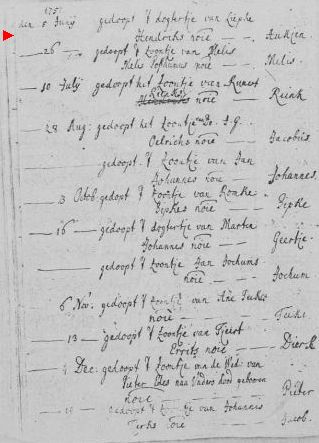 1751
den 5 Junij gedoopt 't dogtertje van Liepke
Hendriks noie — Aukjen.
— 26 — gedoopt 't zoontje van Melis
noie — Melis.
— 10 Julij gedoopt het zoontje van
noie — Reink
— 28 Aug: gedoopt het zoontje Do. J. G.
Oelrichs noie — Jacobus
— gedoopt 't zoontje van Jan
Johannes noie — Johannes
— 3 Octob. gedoopt 't zoontje van Romke
Gipkes noie — Gipke
— 16 — gedoopt 't dogtertje van Marten
Johannes noie — Geertje.
— gedoopt 't zoontje Jan Jochums
noie — Jochum
— 6 Nov. gedoopt 't zoontje van Ane
noie —
— 13 — gedoopt 't zoontje van
noie — Dierk
— 4 Dec: gedoopt 't zoontje van de Wed: van
Pieter nau Vaders dood geboren
noie — Pieter
— 19 — gedoopt 't zoontje van Johannes
noie — Jacob.